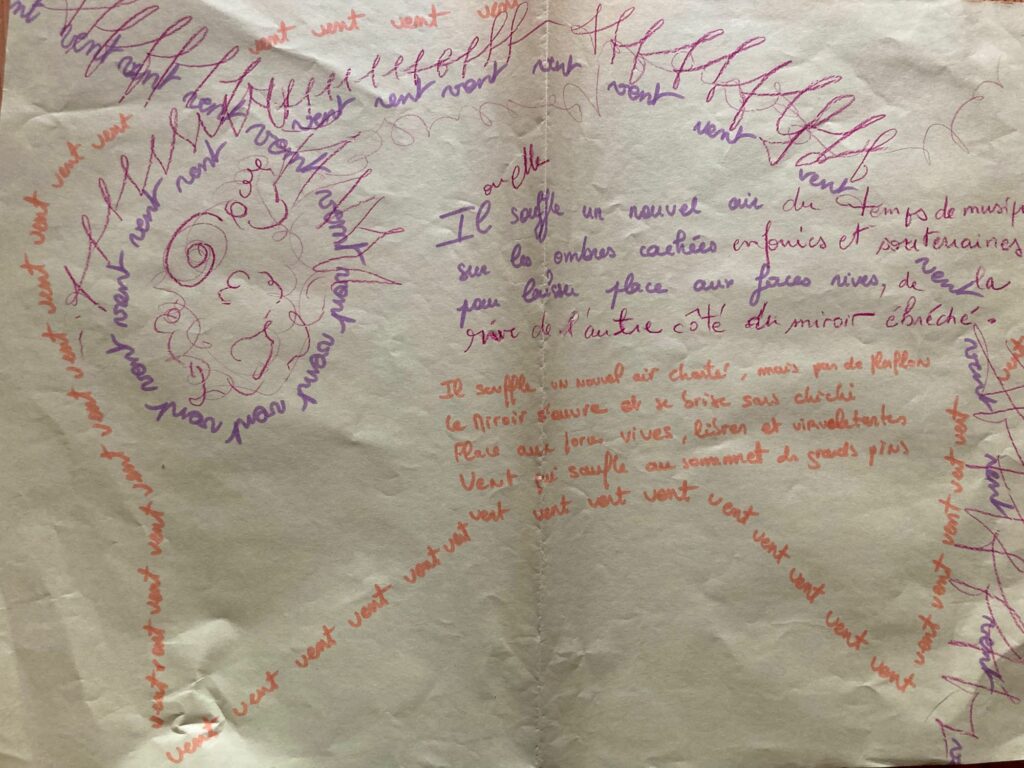 vent vent vent vent
vent vent vent vent vent vent vent vent vent vent
vent vent vent vent vent vent vent vent vent vent vent vent vent vent
vent vent vent vent vent vent vent vent vent vent vent vent vent
ou elle
Il souffle un nouvel air du temps de
sur les ombres cachées enfouies et souterraines
pour laisser place aux faces vives, de la
rive de l'autre côté du miroir ébréché.
Il souffle un nouvel air mais pas de
Le Miroir s'ouvre et se brise sans chichi
Place aux forces vives, libres et
Vent qui soufle au sommet des grands pins
vent vent vent vent vent vent vent vent vent vent vent vent vent vent vent
vent vent vent vent vent
vent vent vent vent